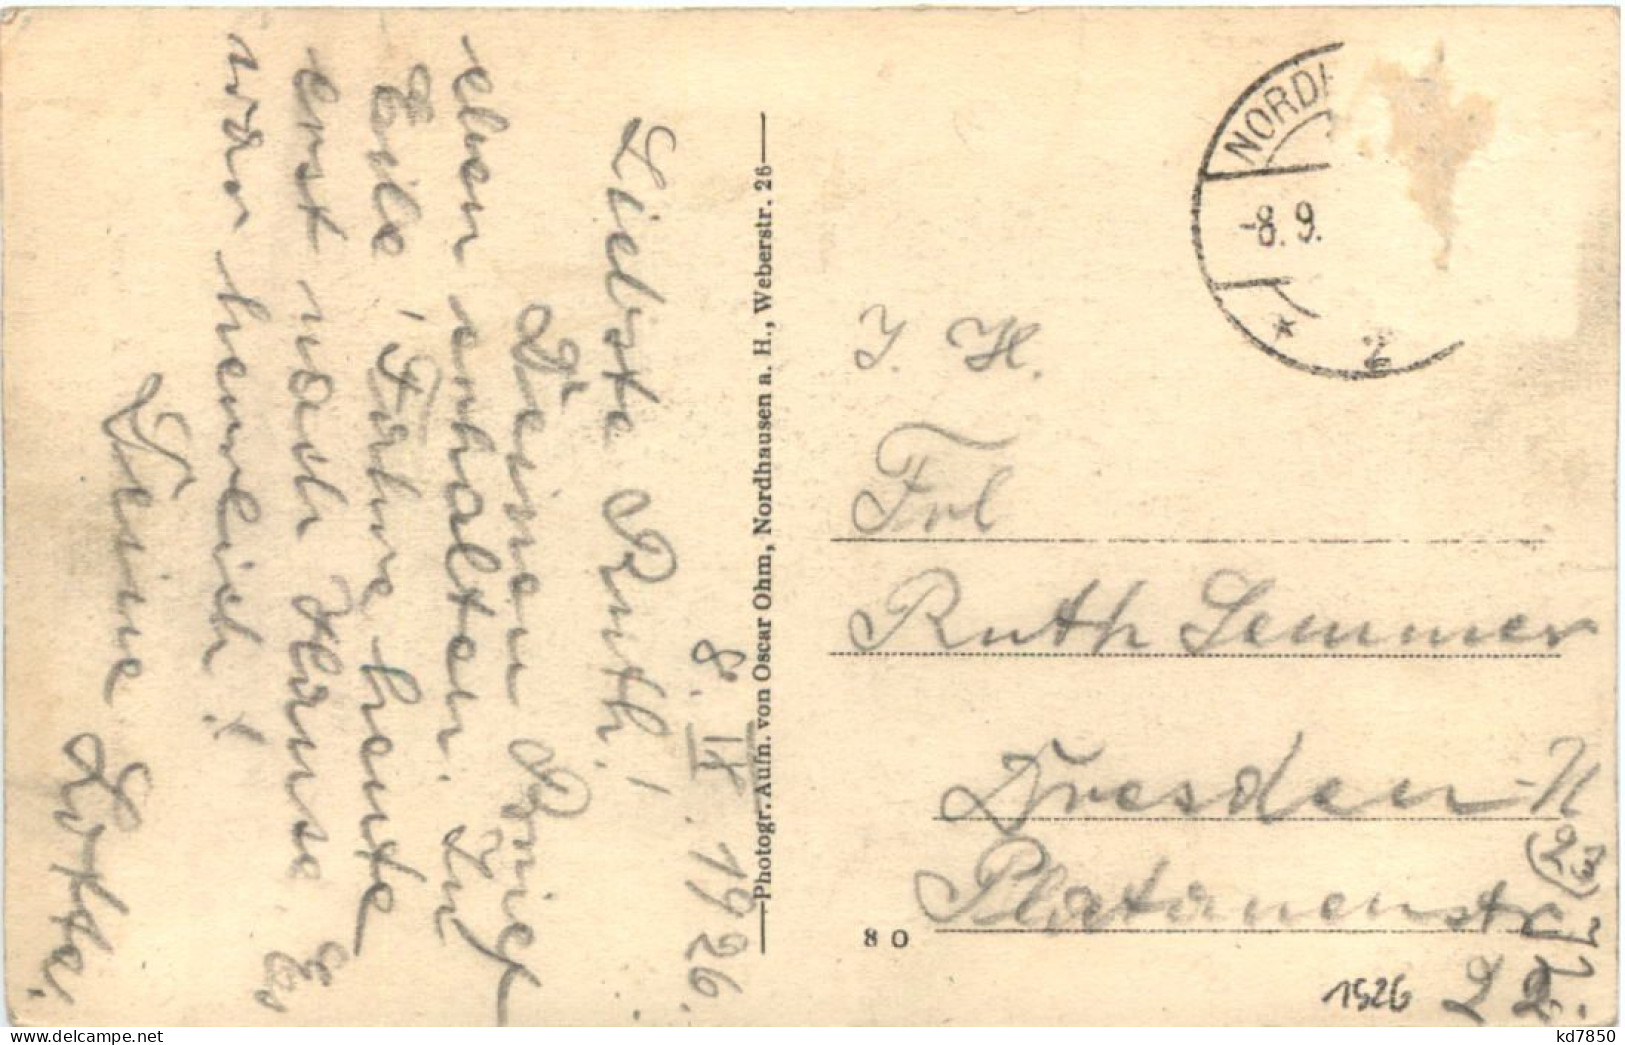 8. IX. 1926.
Liebste Ruth!
Deinen Brief
eben erhalten. In
Eile! Fahre heute
erst nach Hause. Es
war herrlich!
Deine
Lotte.
Photogr. Aufn. von Oscar Ohm, Nordhausen a. H., Weberstr. 26
NORDH
-8. 9.
* 2
I. H.
Frl
Ruth Semmer
Dresden-N
(23)
Platanenstr
80
1926
kd7850